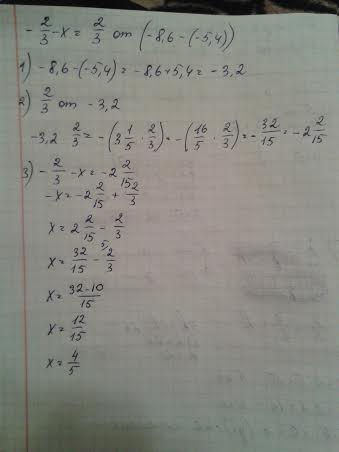 - 2/3 - x = 2/3 от (-8,6 - (-5,4))
1) -8,6 - (-5,4) = -8,6 + 5,4 = -3,2
2) 2/3 от -3,2
-3,2 · 2/3 = -(3 1/5 · 2/3) = -(16/5 · 2/3) = - 32/15 = -2 2/15
3) - 2/3 - x = -2 2/15
-x = -2 2/15 + 2/3
x = 2 2/15 - 2/3
x = 32/15 - 2/3 ⁵⁾
x = 32-10/15
x = 12/15
x = 4/5